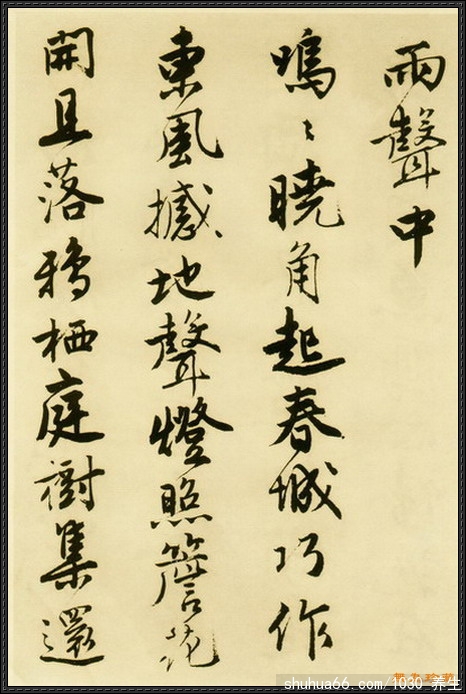 雨聲中
嗚〻曉角起春城巧作
東風撼地聲燈照簷花
開且落鴉栖庭樹集還
shuhua66.com/1030 养生